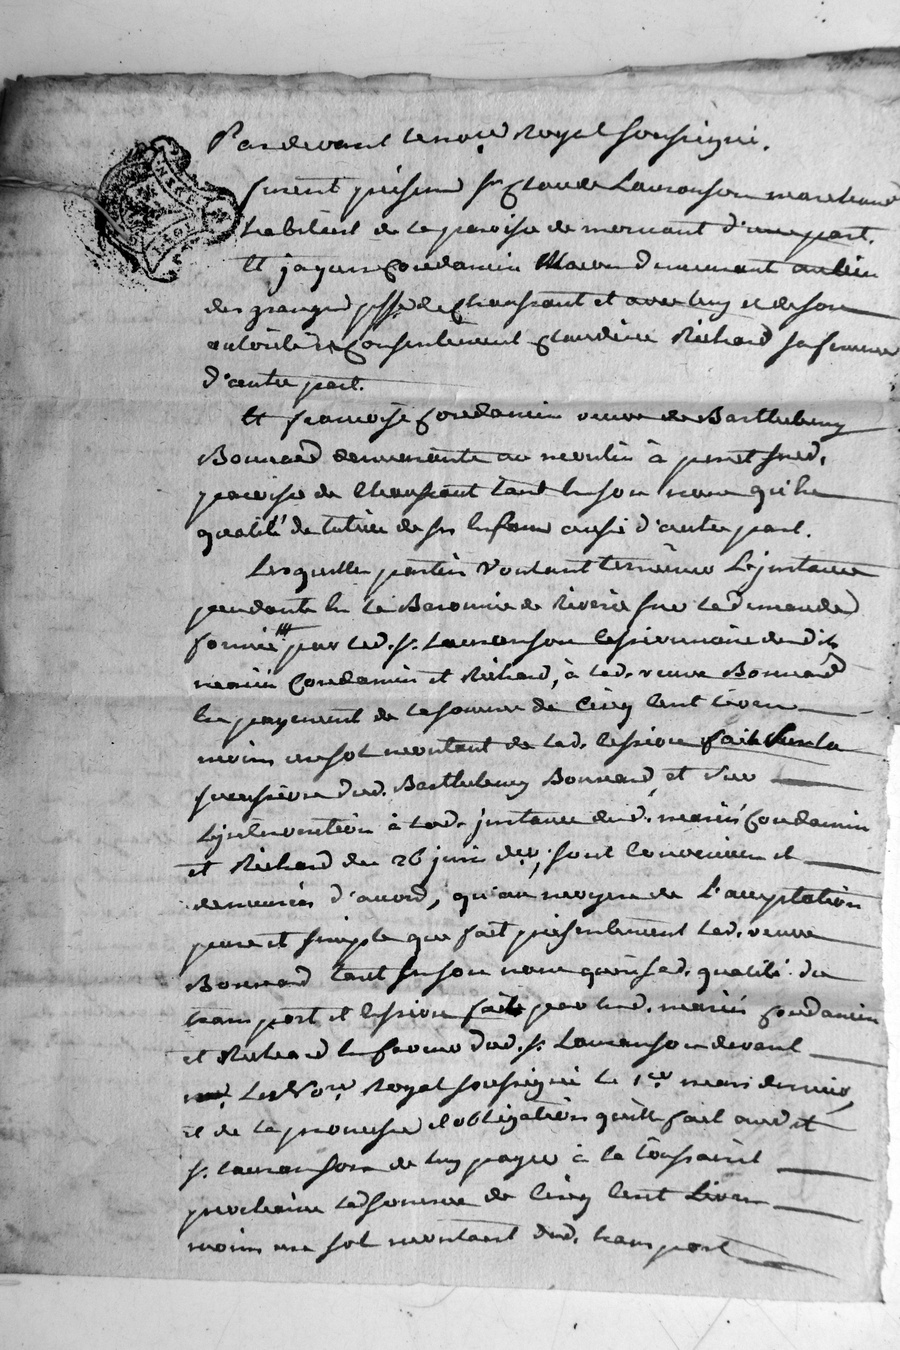 Pardevant le no.re Royal soussigné.
furent présens s.r Claude Lauranson marchand
habitant de la paroisse de mornant d'une part.
Et jaques Condamin Macon demeurant au lieu
des granges p.sse de Chaussant et avec luy et de son
autorité et consentement Claudine Richard sa femme
d'autre part.
Et françoise Condamin veuve de Barthelemy
Bonnard demeurante au moulin à
paroisse de Chaussant tant en son nom qu'en
qualité de tutrice de ses enfans aussi d'autre part.
Lesquelles parties voulant terminer L'jnstance
pendante en la Baronnie de Riverie sur la demande
formée par led. s.r Lauranson cessionnaire desdits
mariés Condamin et Richard, à lad. veuve Bonnard
en payement de la somme de Cinq Cent Livres
moins un sol montant de lad. cession faite sur la
succession dud. Barthelemy Bonnard, et sur
L'jntervention à lad. jnstance desd. mariés Condamin
et Richard du 26 juin d.er, sont convenues et
demeurées d'accord, qu'au moyen de L'acceptation
pure et simple que fait présentement lad. veuve
Bonnard tant en son nom qu'en sad. qualité du
transport et cession faits par lesd. mariés Condamin
et Richard en faveur dud. s.r Lauranson devant
Led No.re Royal soussigné le 1.er mars dernier,
et de la promesse et obligation qu'elle fait aud et
s.r Lauranson de luy payer à la Toussaint
prochaine lad somme de Cinq Cent Livres
moins un sol montant dud. transport